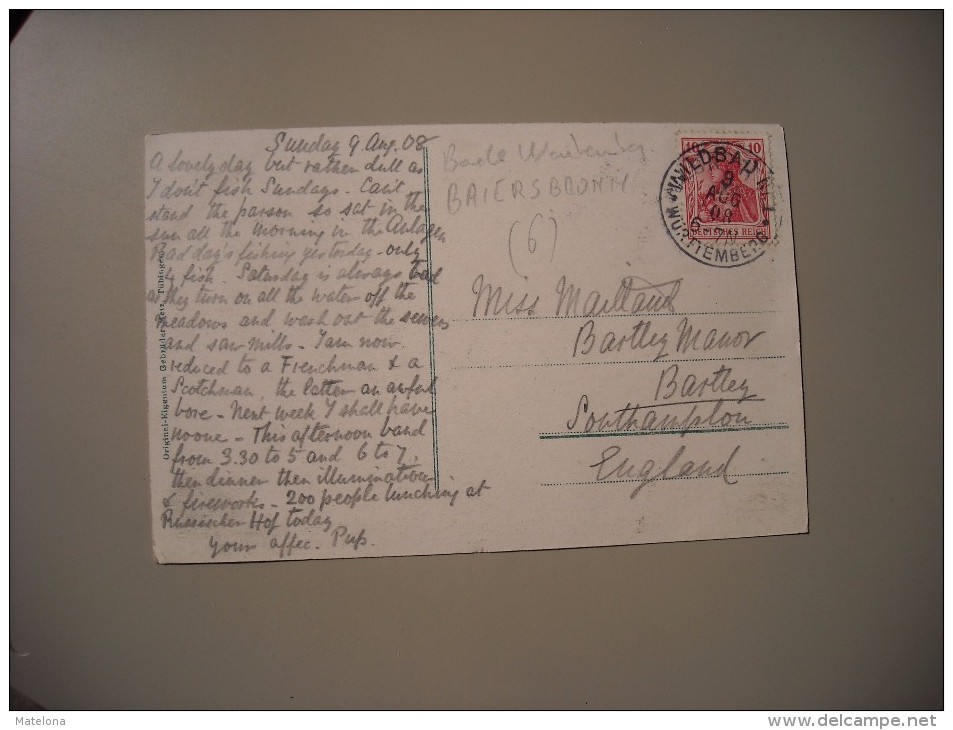 Sunday 9 Aug. 08
A lovely day but rather dull as
I don't fish Sundays. Can't
stand the parson so sat in the
sun all the morning in the Anlagen
Bad day's fishing yesterday - only
4 fish. Saturday is always bad
as they turn on all the water off the
meadows and wash out the sewers
and saw mills - I am now
reduced to a Frenchman & a
Scotchman, the latter an awful
bore - Next week I shall have
no one - This afternoon band
from 3.30 to 5 and 6 to 7,
then dinner then illuminations
& fireworks - 200 people lunching at
Russischer Hof today
Your affec.
Original-Eigentum Gebrüder Metz, Tübingen
BAIERSBRONN
(6)
10 10
DEUTSCHES REICH
WILDBAD
9
AUG
08
WÜRTTEMBERG
Miss Maitland
Bartley Manor
Bartley
Southampton
England
Matelona
http://www.delcampe.net